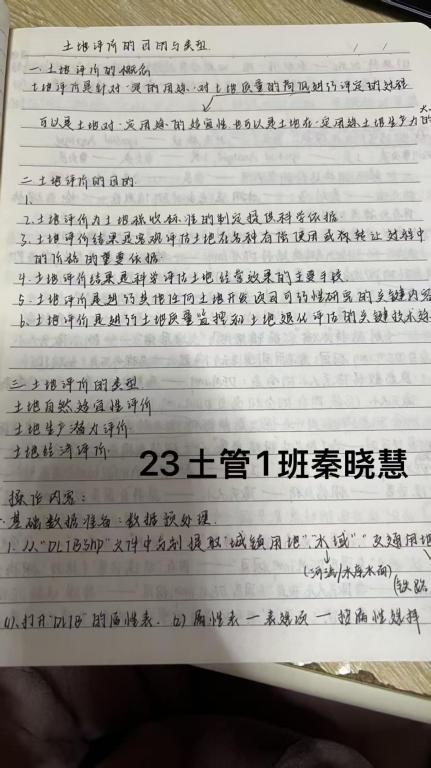 土地评价的目的与类型
一、土地评价的概念
土地评价是针对一定的用途，对土地质量的高低进行评定的过程
可以是土地对一定用途的适宜性也可以是土地在一定用途土地生产力的大
二、土地评价的目的
1.
2.土地评价为土地税收标准的制定提供科学依据
3.土地评价结果是客观评估土地在各种有偿使用或权转让过程中
的价格的重要依据
4.土地评价结果是科学评估土地经营效果的主要手段
5.土地评价是进行其他任何土地开发项目可行性研究的关键内容
6.土地评价是进行土地质量监控和土地退化评估的关键技术
三、土地评价的类型
土地自然适宜性评价
土地生产潜力评价
土地经济评价
23土管1班秦晓慧
操作内容：
基础数据准备：数据预处理
1.从"DLTBshp"文件中分别提取"城镇用地""水域""交通用地
(河流/水库水面)
(铁路
(1).打开"DLTB"的属性表. (2)属性表—表选项—按属性选择